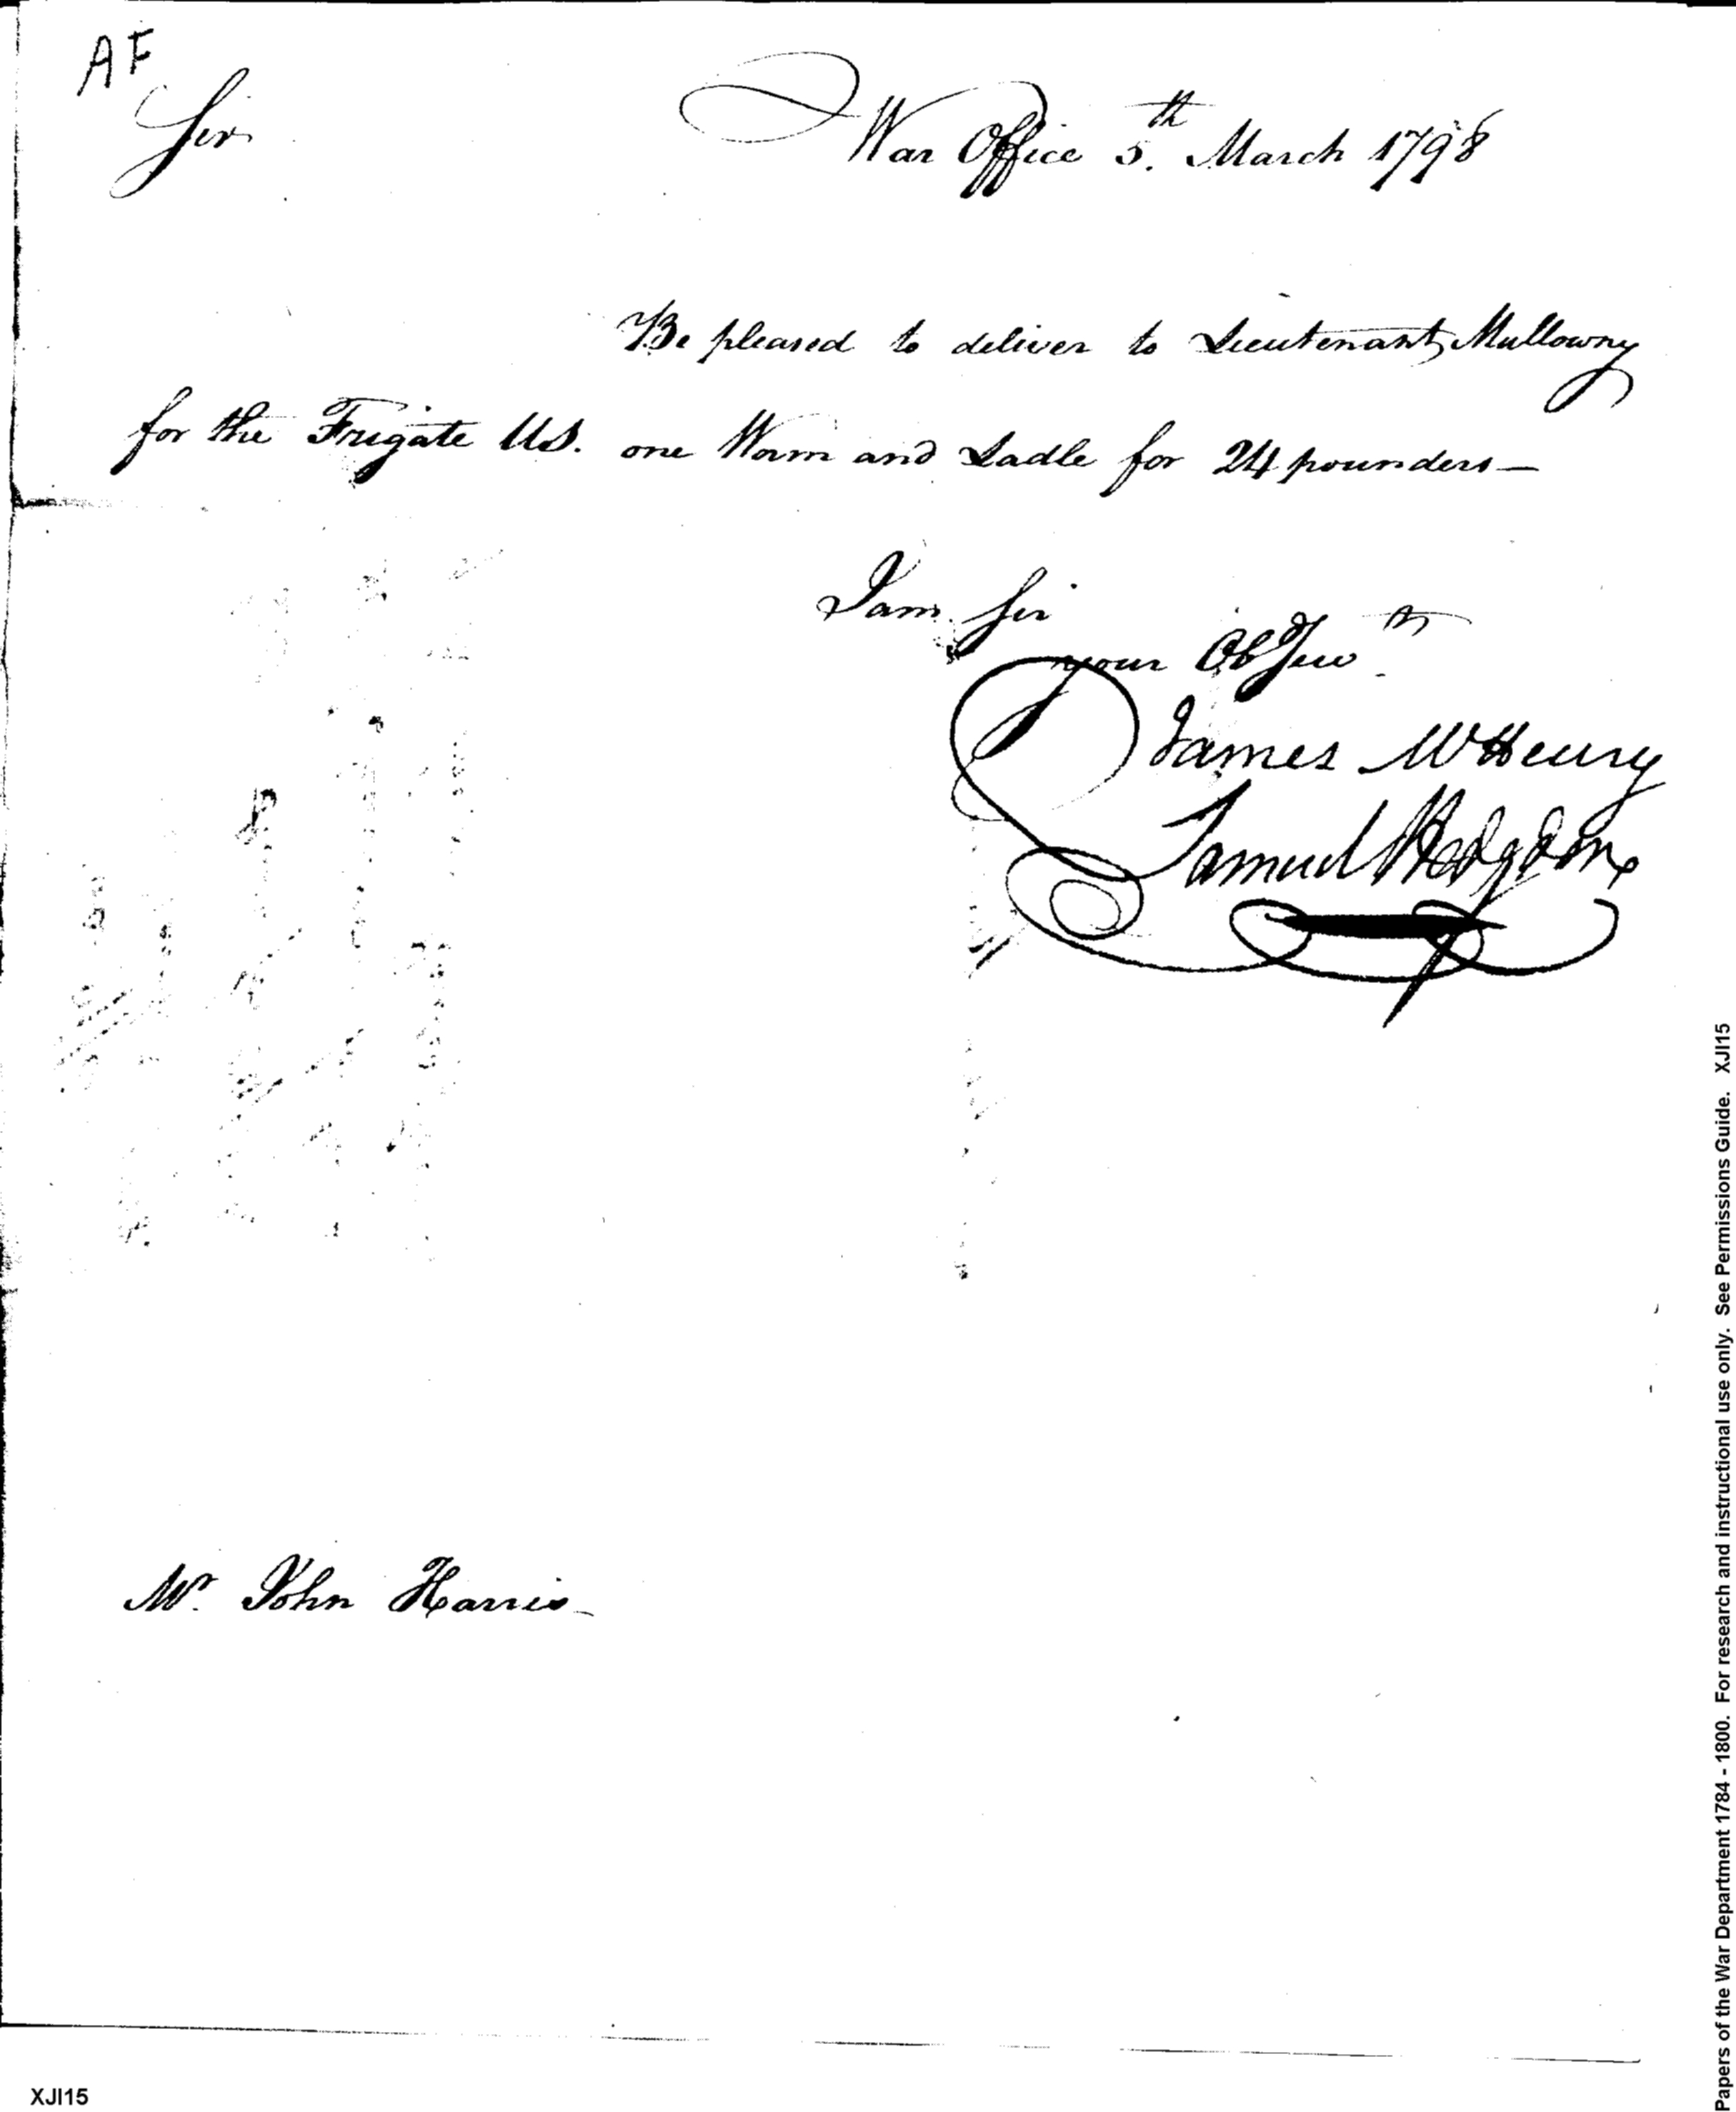 AF
Sir
War Office 5th. March 1798
Be pleased to deliver to Lieutenant Mullowny
for the Frigate US. one Worm and Ladle for 24 pounders—
I am Sir
your Ob Serv.t
James McHenry
Samuel Hodgdon
Mr. John Harris
Papers of the War Department 1784 - 1800. For research and instructional use only. See Permissions Guide. XJI15
XJI15